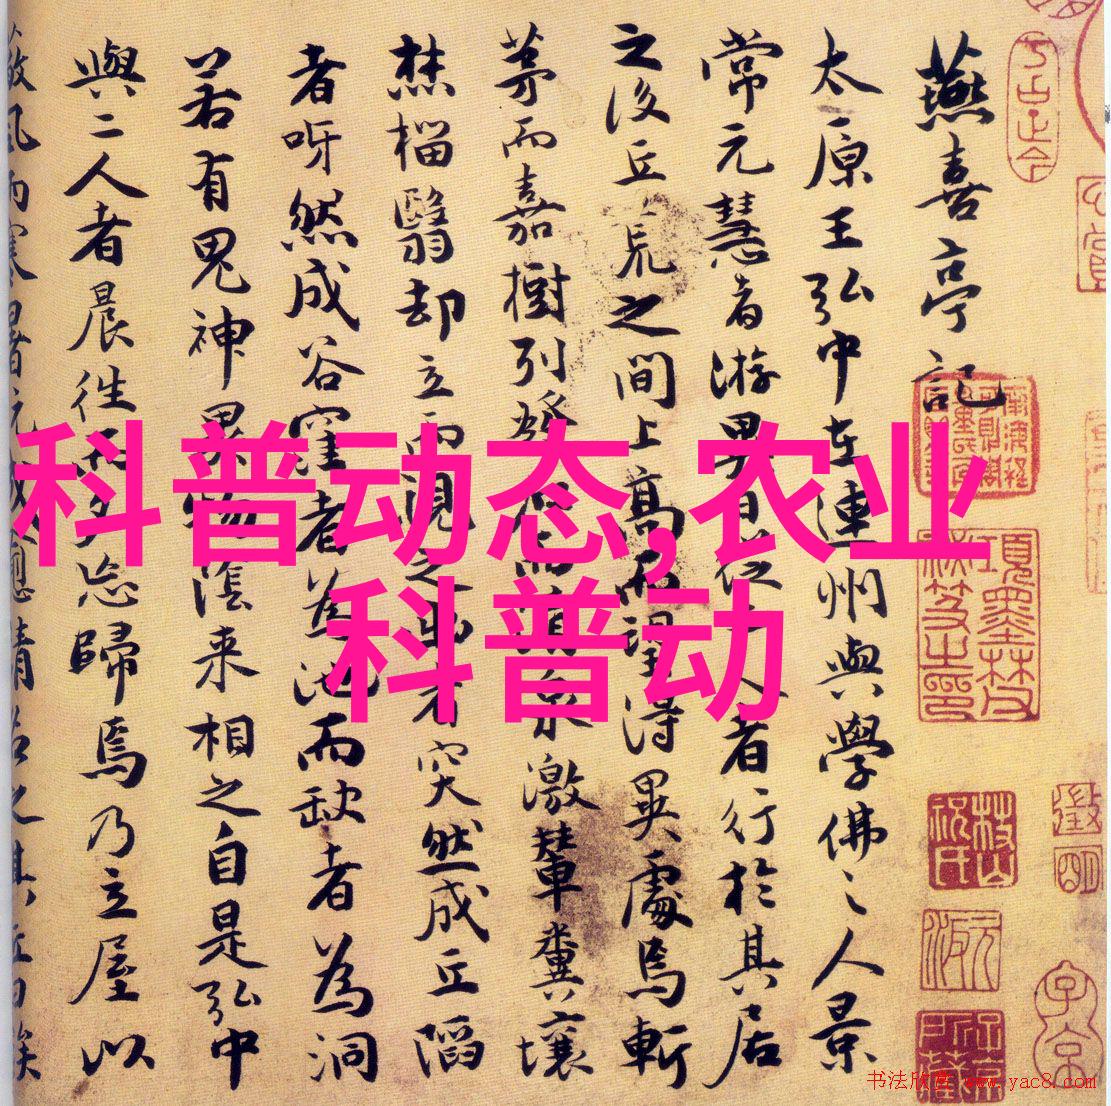 燕喜亭記
太原王弘中在連州與學佛之人景
常元慧者游異日從二人者行於其居
之後丘荒之間上高而望得異處焉斬
茅而嘉樹列發石而清泉激輦糞壤
椔翳却立而視之出者突然成丘陷
者呀然成谷窪者為池而缺者為洞
若有鬼神異物陰来相之自是弘中
與二人者晨往而夕忘歸焉乃立屋以
科普动态,农业
科普动
书法欣赏 www.yac8.com